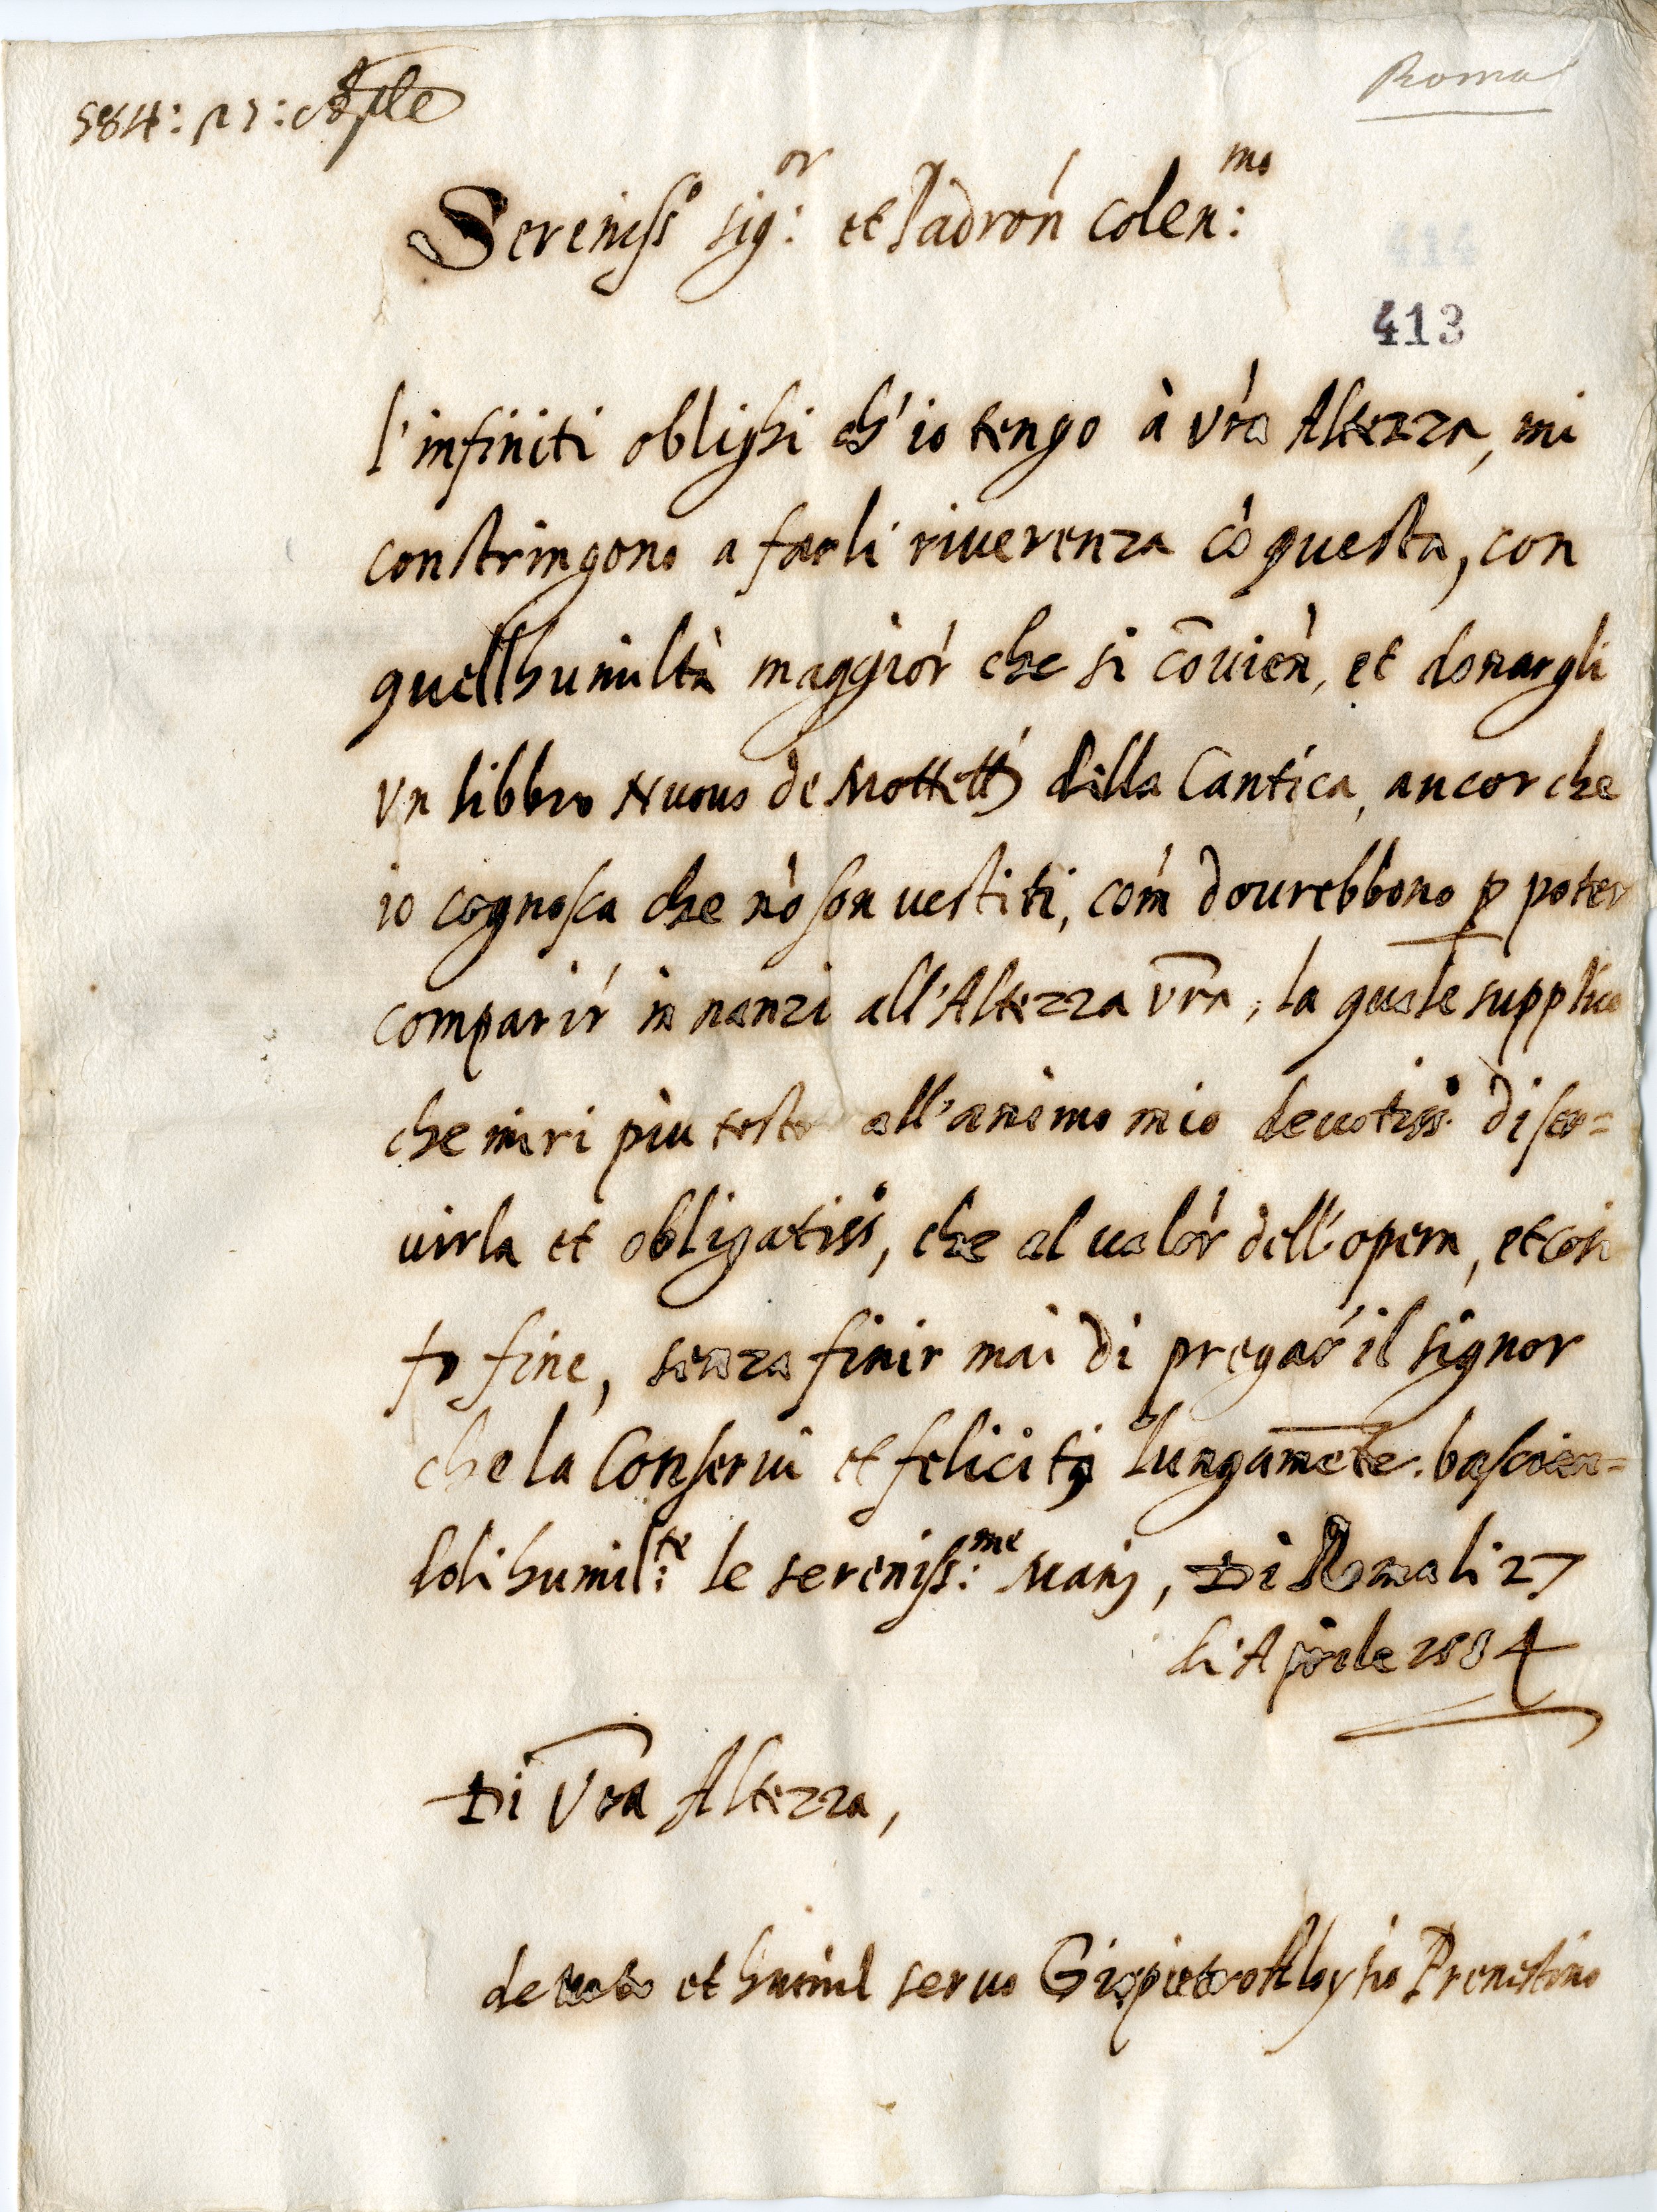 584: 27: Aple
Roma
Sereniss.o sig:or et Padron colen:mo
414
413
l'infiniti oblighi ch'io tengo à vra Altezza, mi
constringono a farli riuerenza cō questa, con
quell humiltà maggior che si cōuien, et donargli
vn libbro Nuouo de Mottetti dilla Cantica, ancor che
io cognosca che nō son uestiti, com dourebbono p poter
comparir in nanzi all'Altezza vra, la quale supplico
che miri più tosto all'animo mio deuotiss.o di ser=
uirla et obligatiss.o, che al ualor dell'opera, et così
fo fine, senza finir mai di pregar il signor
che la Conserui et feliciti lungamēte. bascian=
doli humil:te le sereniss:me Manj, Di Roma li 27
di Aprile 1584
Di Vra Altezza,
deuoto et humil seruo Giopietroaloysio Prenestino